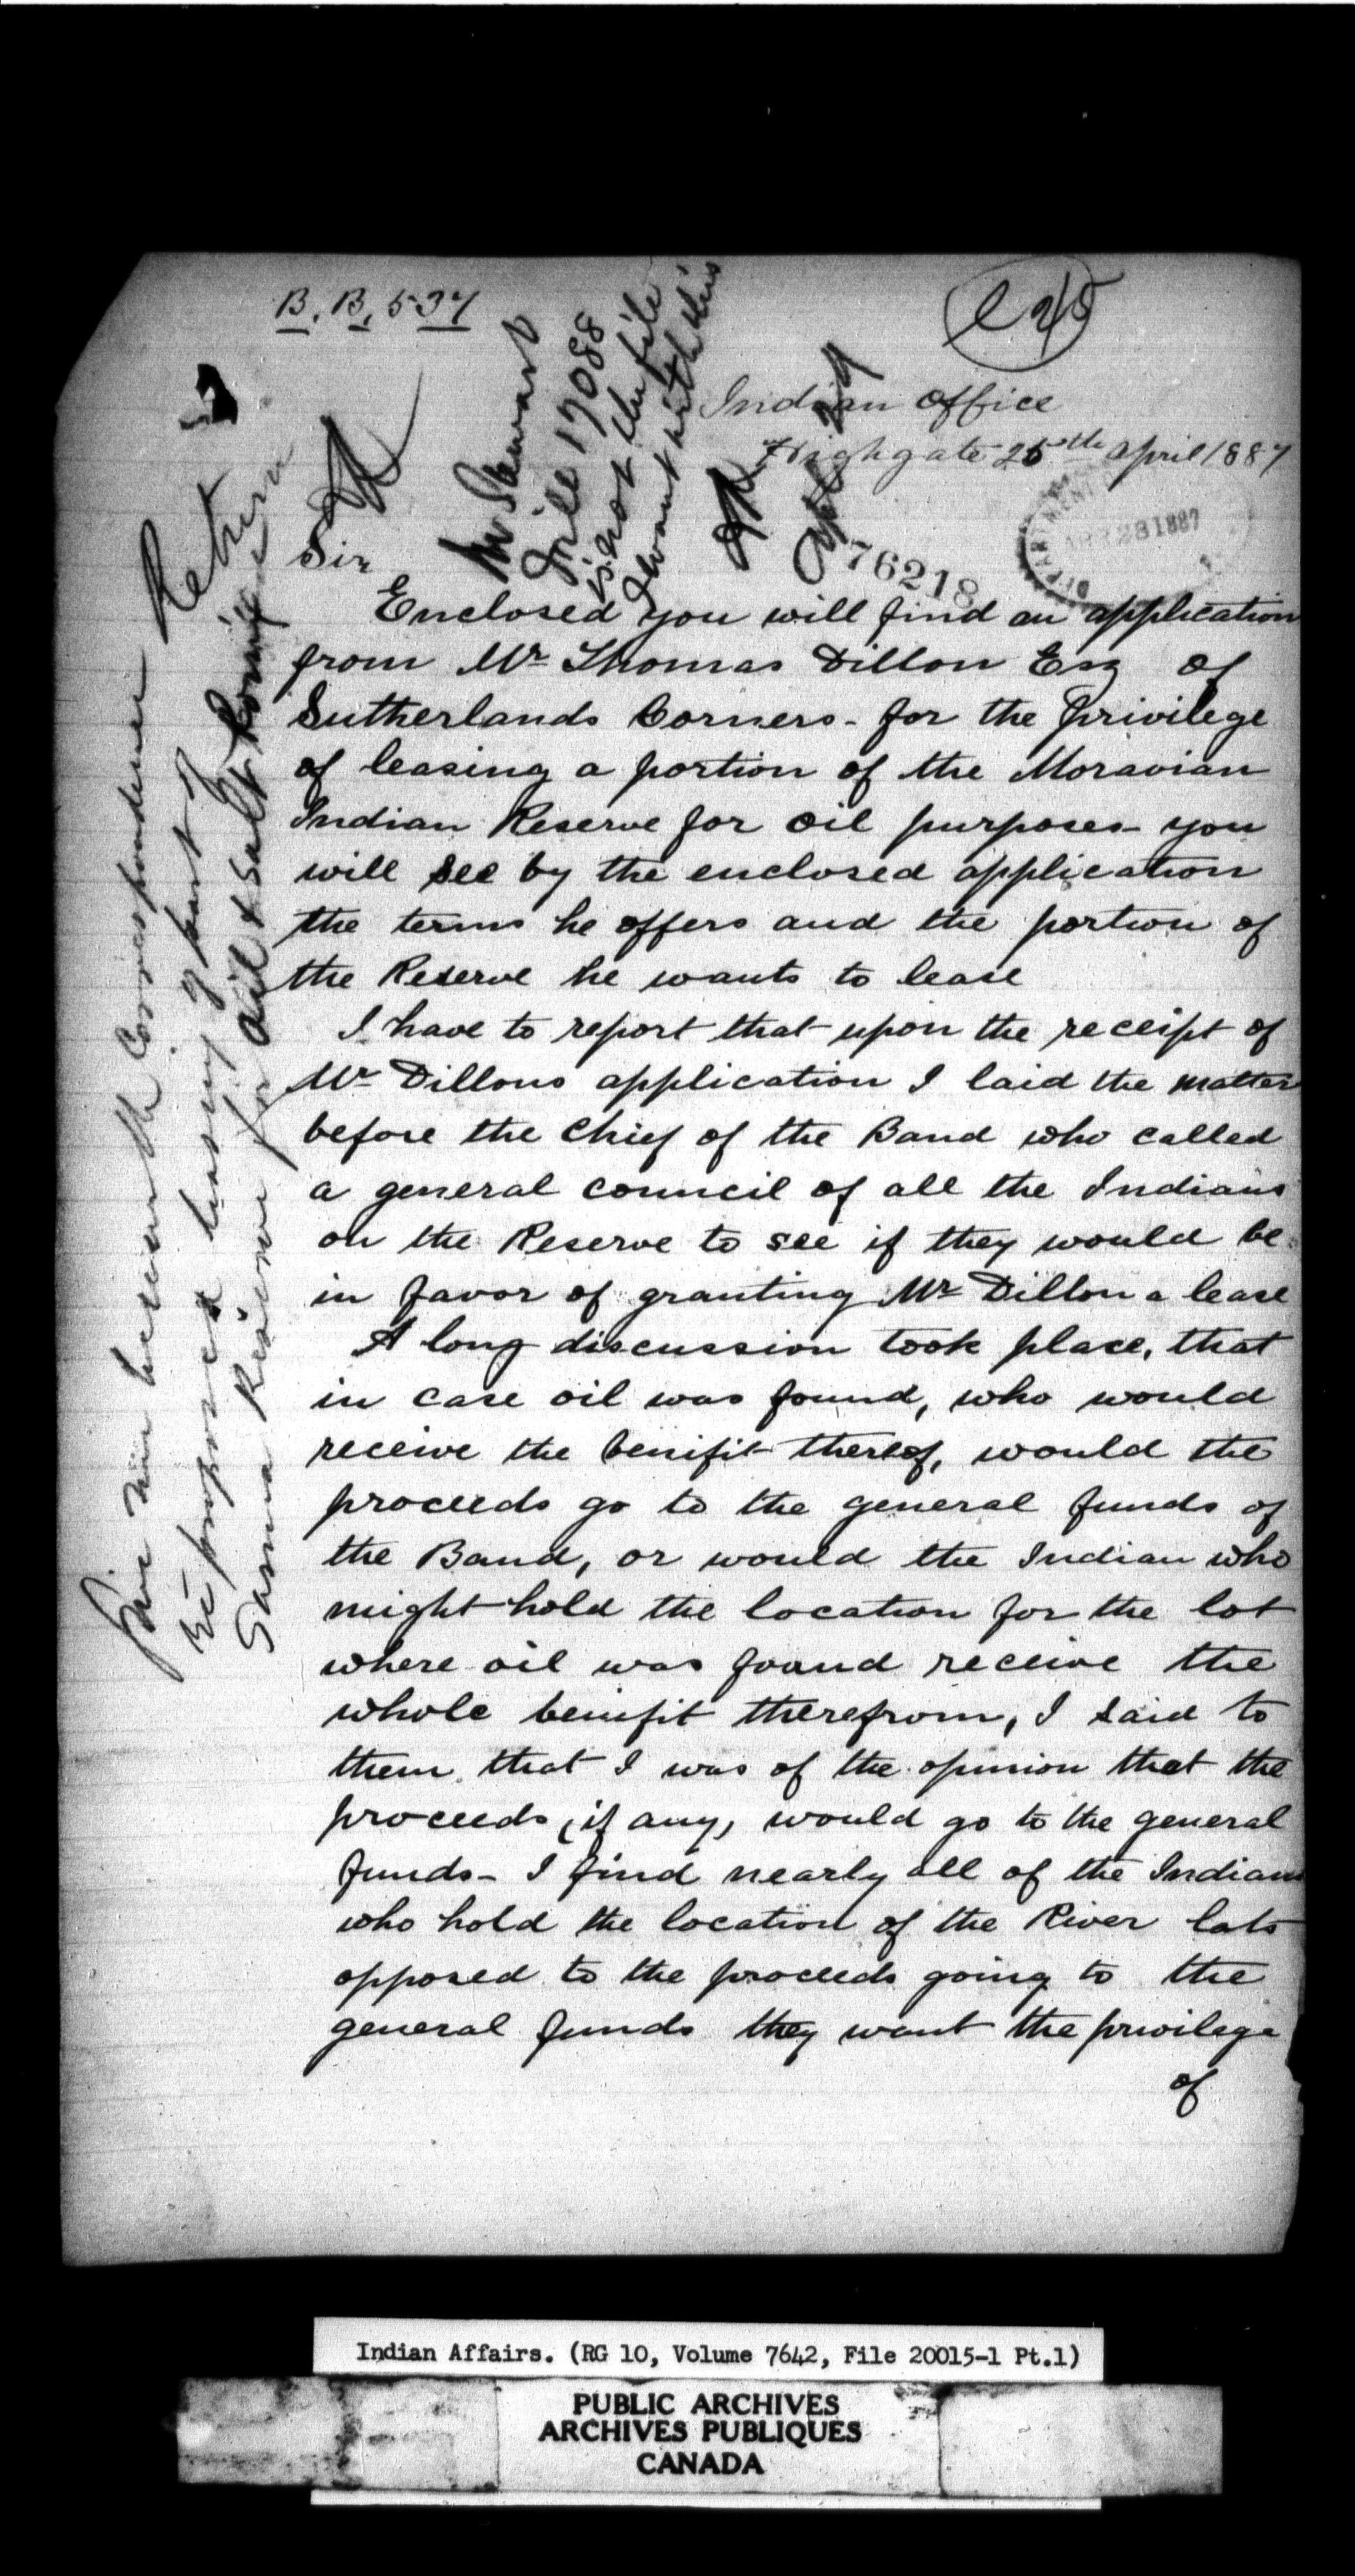 B. B. 537
L 25
Mr Stewart
File 17088
is not the file
I want with this
Apl 29
Indian Office
Highgate 25th April 1887
DEPARTMENT
APR 28 1887
76218
Return
Give me herewith Correspondence
re proposed leasing of part of
Sarnia Reserve for oil & Salt
Sir
Enclosed you will find an application
from Mr Thomas Dillon Esq of
Sutherlands Corners - for the privilege
of leasing a portion of the Moravian
Indian Reserve for oil purposes - you
will see by the enclosed application
the terms he offers and the portion of
the Reserve he wants to lease
I have to report that upon the receipt of
Mr Dillons application I laid the matter
before the Chief of the Band who called
a general council of all the Indians
on the Reserve to see if they would be
in favor of granting Mr Dillon a lease
A long discussion took place, that
in case oil was found, who would
receive the benifit thereof, would the
proceeds go to the general funds of
the Band, or would the Indian who
might hold the location for the lot
where oil was found receive the
whole benifit therefrom, I said to
them that I was of the opinion that the
proceeds, if any, would go to the general
funds - I find nearly all of the Indians
who hold the location of the River lots
opposed to the proceeds going to the
general funds they want the privilege
of
Indian Affairs. (RG 10, Volume 7642, File 20015-1 Pt.1)
PUBLIC ARCHIVES
ARCHIVES PUBLIQUES
CANADA